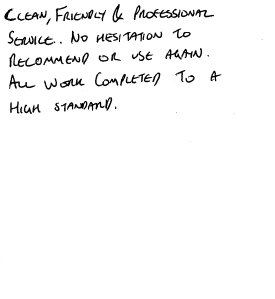 CLEAN, FRIENDLY & PROFESSIONAL
SERVICE.. NO HESITATION TO
RECOMMEND OR USE AGAIN.
ALL WORK COMPLETED TO A
HIGH STANDARD.